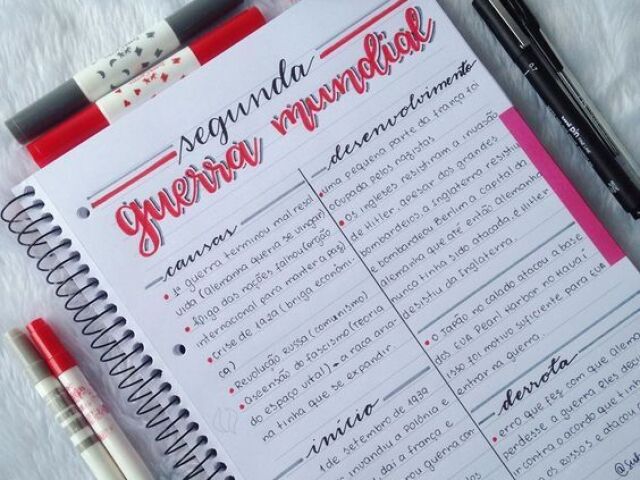 segunda
guerra mundial
causas
• 1ª guerra terminou mal resol
vida (alemanha queria se vingar)
• A liga das nações falhou (órgão
internacional para manter a paz)
• Crise de
(briga econômi
ca)
• Revolução Russa (comunismo)
• Ascensão do fascismo (teoria
do espaço vital) → a raça aria
na tinha que se expandir.
início
1 de setembro de 1939
invandiu a polônia e
daí a frança e
guerra con
desenvolvimento
• uma pequena parte da frança foi
ocupada pelos nazistas
• Os ingleses resistiram a invasão
de Hitler, apesar dos grandes
bombardeios a inglaterra resistiu
e bombardeou Berlin a capital da
alemanha que até então alemanha
nunca tinha sido atacada, e Hitler
desistiu da Inglaterra.
• o Japão no calado atacou a base
dos EUA Pearl Harbor no Havaí
isso foi motivo suficiente para EUA
entrar na guerra.
derrota
• erro que fez com que Alema
perdesse a guerra. Eles
contra o acordo que
os russos e atacou